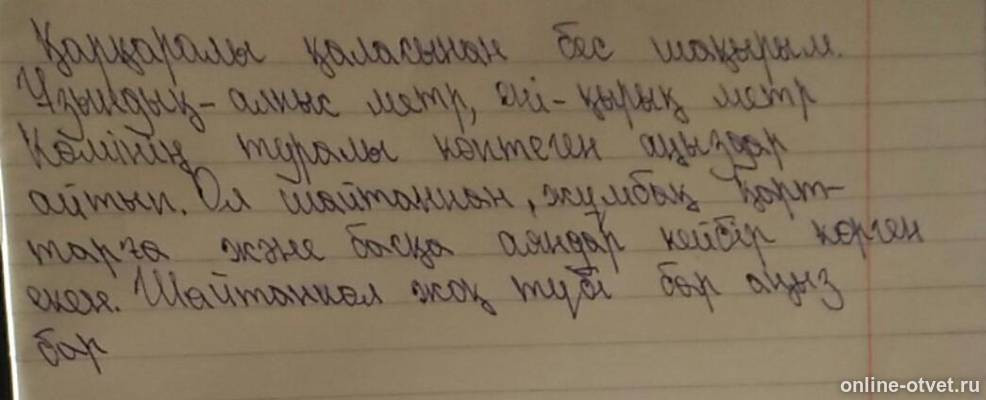 Қарқаралы қаласынан бес шақырым.
Ұзындық - алпыс метр, ені - қырық метр
Көлінің туралы көптеген аңыздар
айтып. Ол шайтаннан, жұмбақ Қарт-
тарға және басқа аяндар кейбір көрген
екен. Шайтанкөл жоқ түбі бар аңыз
бар
online-otvet.ru